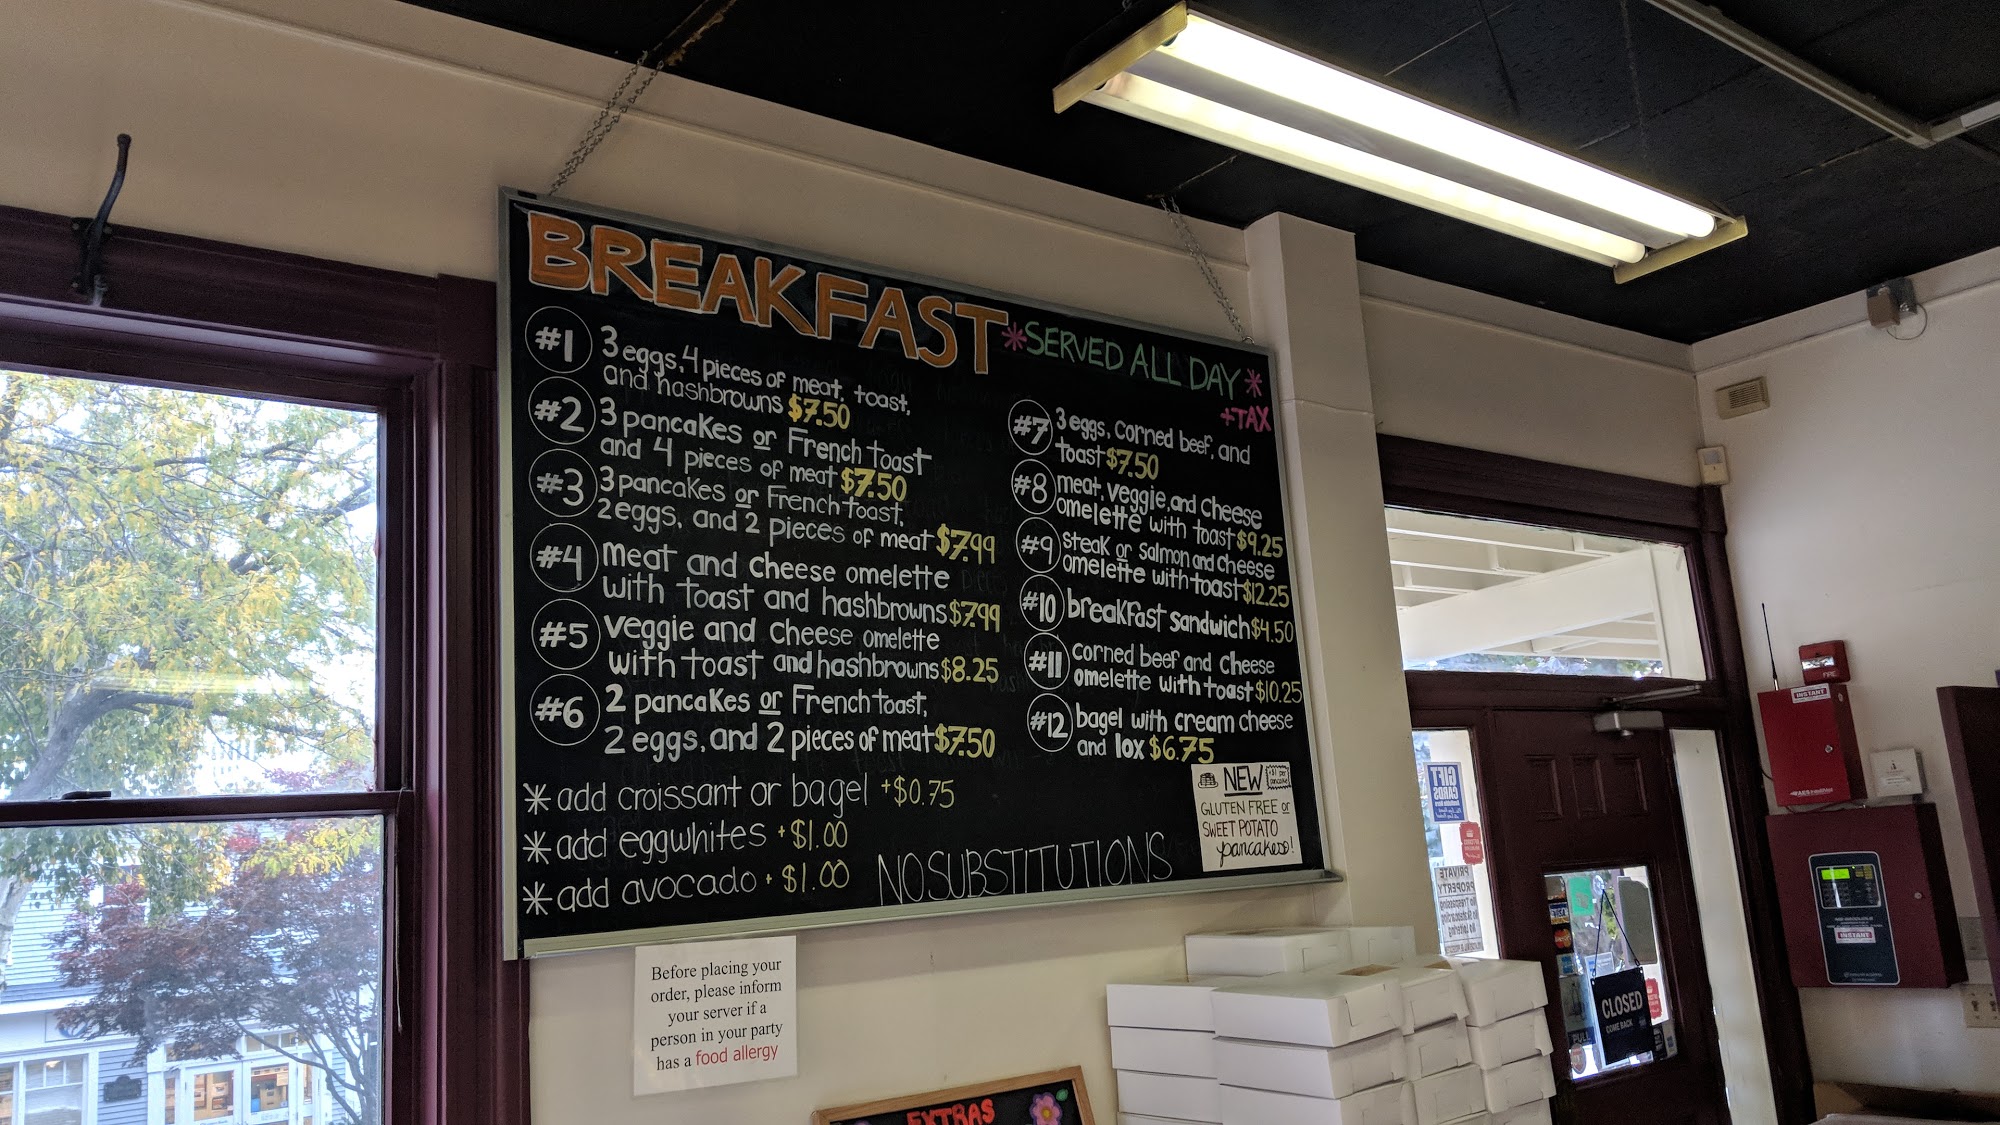 BREAKFAST
*SERVED ALL DAY*
+TAX
#1 3 eggs, 4 pieces of meat, toast,
and hashbrowns $7.50
#2 3 pancakes or French toast
and 4 pieces of meat $7.50
#3 3 pancakes or French toast,
2 eggs, and 2 pieces of meat $7.99
#4 meat and cheese omelette
with toast and hashbrowns $7.99
#5 veggie and cheese omelette
with toast and hashbrowns $8.25
#6 2 pancakes or French toast,
2 eggs, and 2 pieces of meat $7.50
#7 3 eggs, corned beef, and
toast $7.50
#8 meat, veggie, and cheese
omelette with toast $9.25
#9 steak or salmon and cheese
omelette with toast $12.25
#10 breakfast sandwich $4.50
#11 corned beef and cheese
omelette with toast $10.25
#12 bagel with cream cheese
and lox $6.75
* add croissant or bagel +$0.75
* add eggwhites +$1.00
* add avocado + $1.00
NO SUBSTITUTIONS
NEW
+$1 per
pancake
GLUTEN FREE or
SWEET POTATO
pancakes!
Before placing your
order, please inform
your server if a
person in your party
has a food allergy
EXTRAS
GIFT
CARDS
PRIVATE
PROPERTY
No Trespassing
No Skateboarding
No Loitering
CLOSED
COME BACK
PULL
FIRE
INSTANT
INSTANT